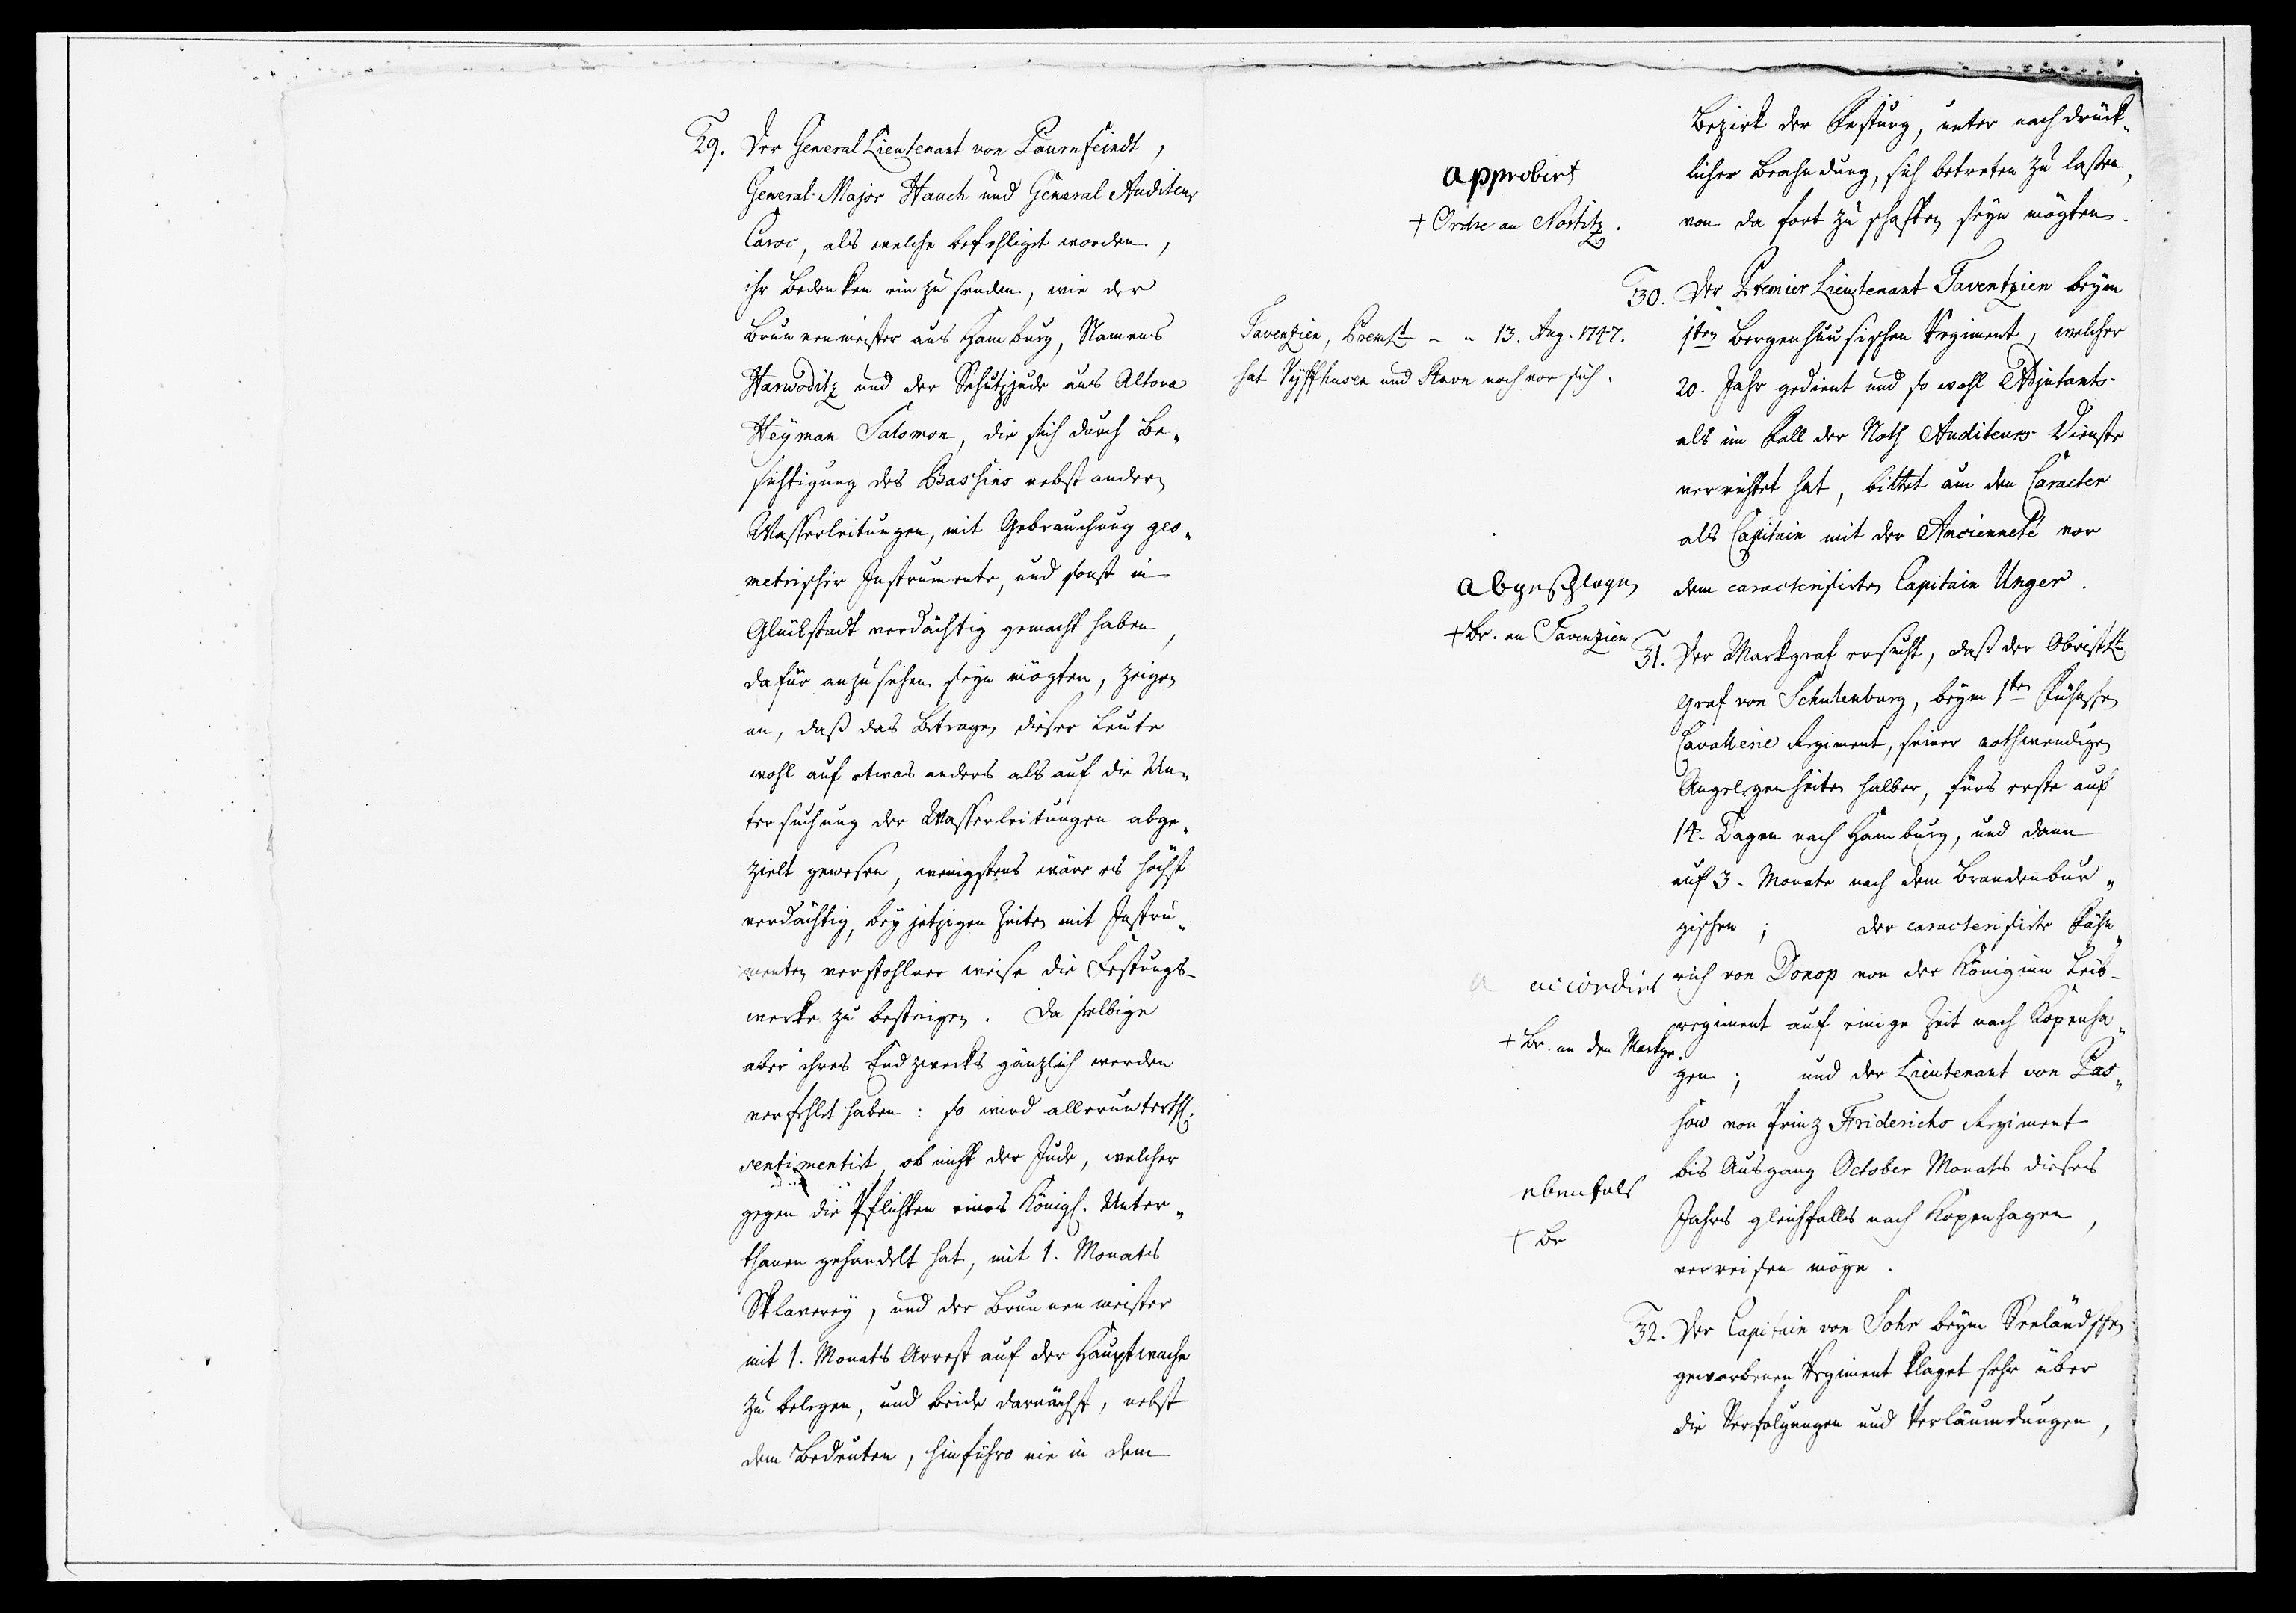 29. Der General Lieutenant von Paurnfeindt,
General-Major Hauch und General Auditeur
Caroc, als welche befehliget worden,
ihr Bedenken ein zu senden, wie der
Brunnenmeister aus Hamburg, Namens
Harwoditz und der Schutzjude aus Altona
Heyman Salomon, die sich durch Be„
sichtigung des Bassins nebst andern
Wasserleitungen, mit Gebrauchung geo„
metrischer Instrumente, und sonst in
Glückstadt verdächtig gemacht haben,
dafür anzusehen seyn mögten, zeigen
an, daß das Betragen dieser Leute
wohl auf etwas anders als auf die Un„
tersuchung der Wasserleitungen abge„
zielt gewesen, wenigstens wäre es höchst
verdächtig, bey jetzigen Zeiten mit Instru„
menten verstohlner weise die Festungs-
werke zu besteigen. Da selbige
aber ihres Endzwecks gänzlich werden
verfehlet haben: so wird allerunterth.
sentimentirt, ob nicht der Jude, welcher
gegen die Pflichten eines Königl. Unter„
thanen gehandelt hat, mit 1. Monats
Sklaverey, und der Brunnenmeister
mit 1. Monats Arrest auf der Hauptwache
zu belegen, und beide darnächst, nebst
dem Bedeuten, hinführo nie in dem
Bezirk der Festung, unter nachdrück„
licher Beahndung, sich betreten zu lassen,
von da fort zu schaffen seyn mögten.
approbirt
+ Ordre an Nostitz.
30. Der Premier Lieutenant Taventzien beym
1sten Bergenhuusischen Regiment, welcher
20. Jahr gedient und so wohl Adjutants-
als im Fall der Noth Auditeurs Dienste
verrichtet hat, bittet um den Caracter
als Capitain mit der Ancienneté vor
dem caracterisirten Capitain Unger.
Tavenzien, Premlt - - 13. Aug. 1747.
hat Vyffhusen und noch vor sich.
abgeschlagen
+ Br. an Tavenzien
31. Der Markgraf ersucht, daß der Obristlt
Graf von Schulenburg, beym 1sten Fühnschen
Cavallerie Regiment, seiner nothwendigen
Angelegenheiten halber, fürs erste auf
14. Tagen nach Hamburg, und dann
auf 3. Monate nach dem Brandenbur„
gischen; der caracterisirte Fähn„
rich von Donop von der Königinn Leib-
regiment auf einige Zeit nach Kopenha„
gen; und der Lieutenant von Pas„
sow von Prinz Friderichs Regiment
bis Ausgang October Monats dieses
Jahrs gleichfalls nach Kopenhagen,
verreisen möge.
a accordirt
+ Br. an den Markgr.
ebenfals
+ Br
32. Der Capitain von Sohr beym Seeländschen
geworbenen Regiment klaget sehr über
die Verfolgungen und Verläumdungen,